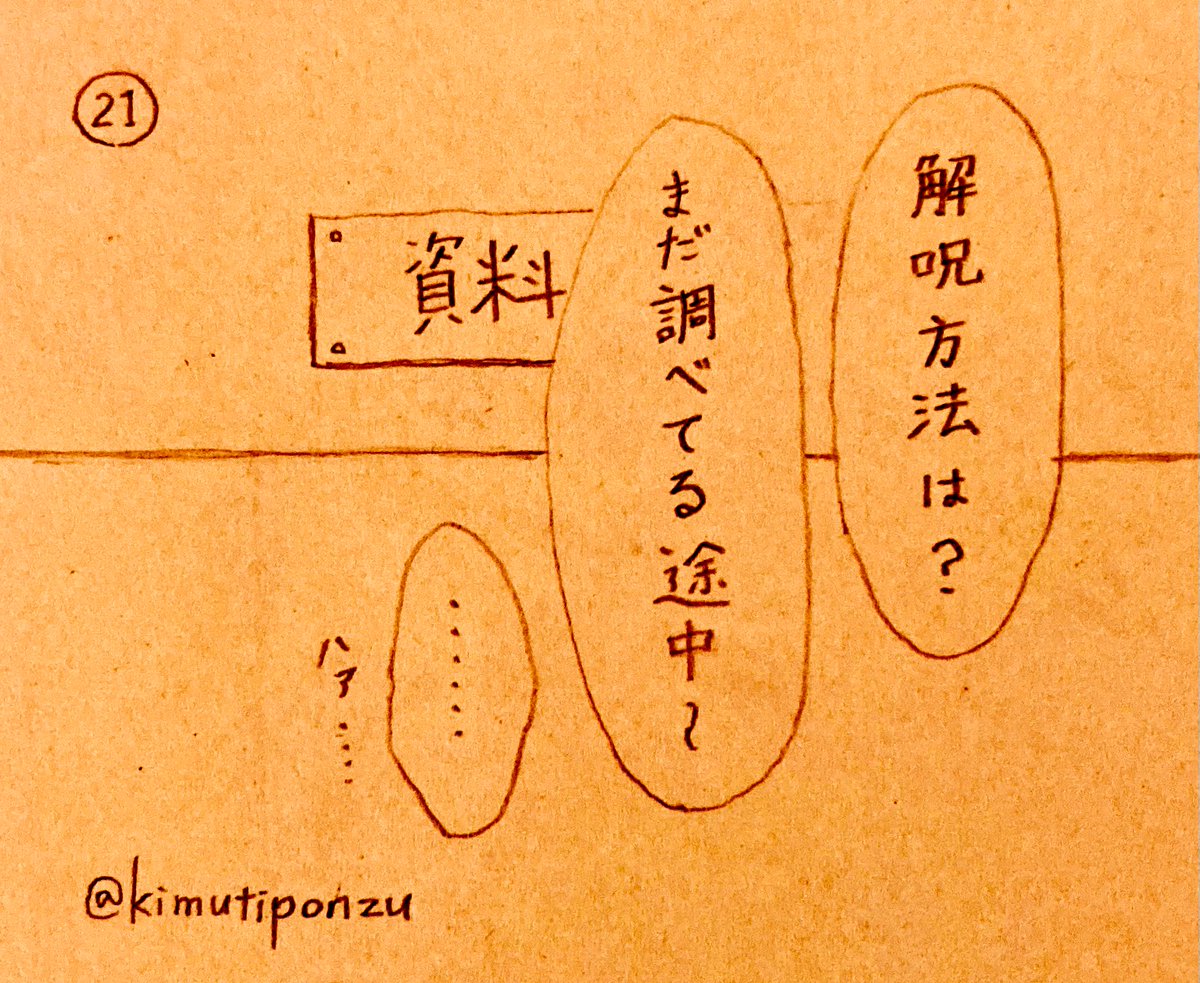 21
解呪方法は?
まだ調べてる途中〜
資料
......
ハァ....
@kimutiponzu